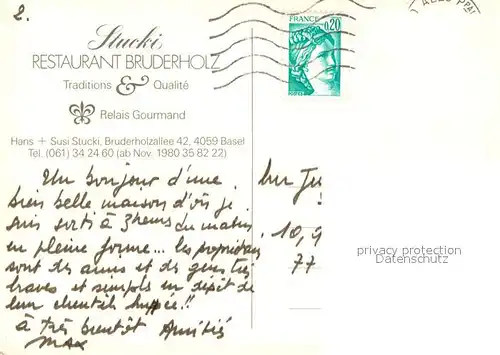 2.
Stucki
RESTAURANT BRUDERHOLZ
Traditions & Qualité
Relais Gourmand
Hans + Susi Stucki, Bruderholzallee 42, 4059 Basel
Tel. (061) 34 24 60 (ab Nov. 1980 35 82 22)
FRANCE
0,20
POSTES
Un bonjour d'une
bien belle maison d'où je
suis sorti à 3 heures du matin
en pleine forme... les propriétaires
sont des amis et des gens très
braves et simples en dépit de
leur clientèle huppée!!
à très bientôt Amitiés
MAX
10,9
77
privacy protection
Datenschutz